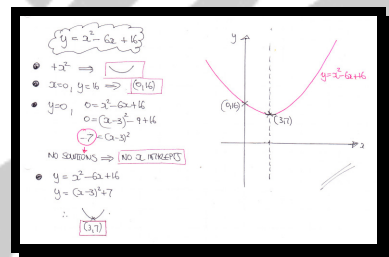 y = x² - 6x + 16
+x² ⇒
x=0, y=16 ⇒ (0,16)
y=0, 0 = x² - 6x + 16
0 = (x-3)² - 9 + 16
-7 = (x-3)²
NO SOLUTIONS ⇒ NO x INTERCEPTS
y = x² - 6x + 16
y = (x-3)² + 7
∴
(3,7)
y
y = x² - 6x + 16
(0,16)
(3,7)
x